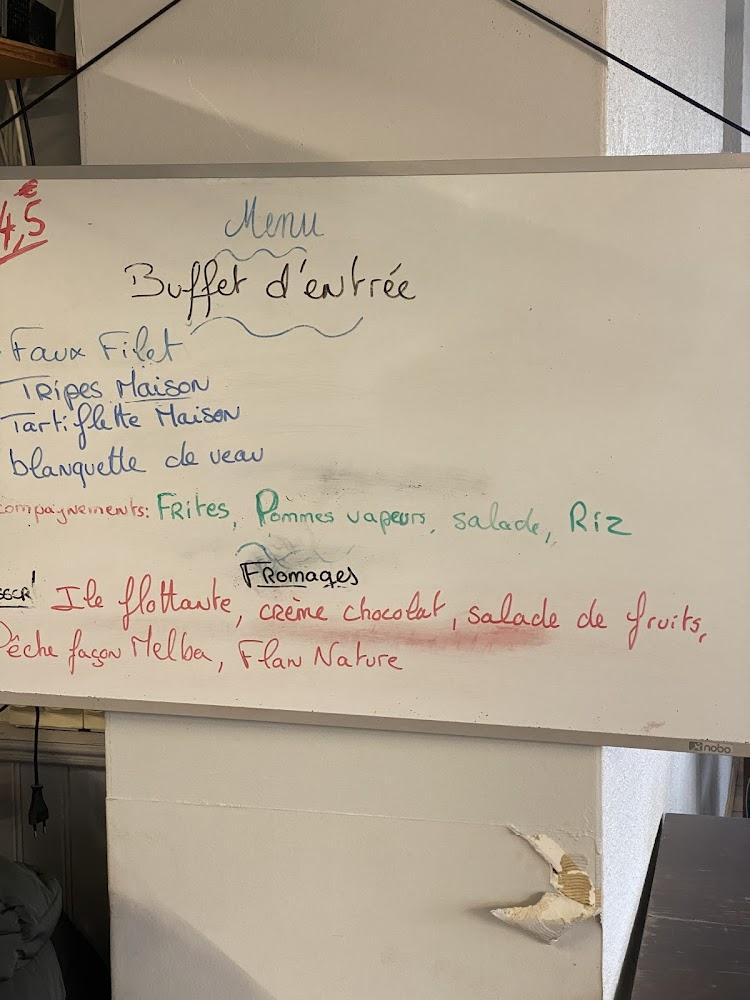 €
4,5
Menu
Buffet d'entrée
- Faux Filet
Tripes Maison
Tartiflette Maison
blanquette de veau
compagnements: Frites, Pommes vapeurs, salade, Riz
Fromages
Ile flottante, crème chocolat, salade de fruits,
Pêche façon Melba, Flan Nature
nobo